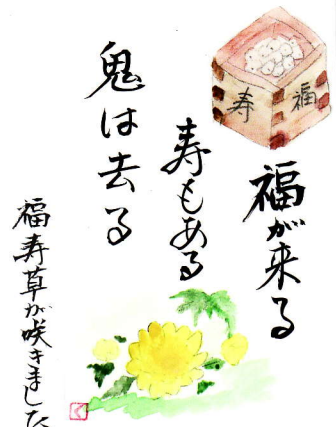 寿 福
福が来る
寿もある
鬼は去る
福寿草が咲きました